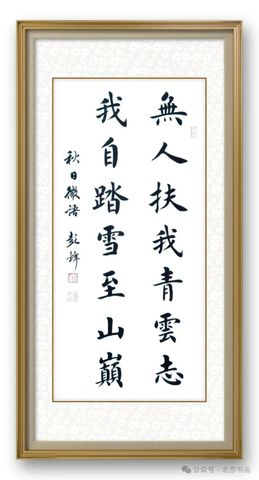 無人扶我青雲志
我自踏雪至山巔
秋日
公众号 · 北京书画